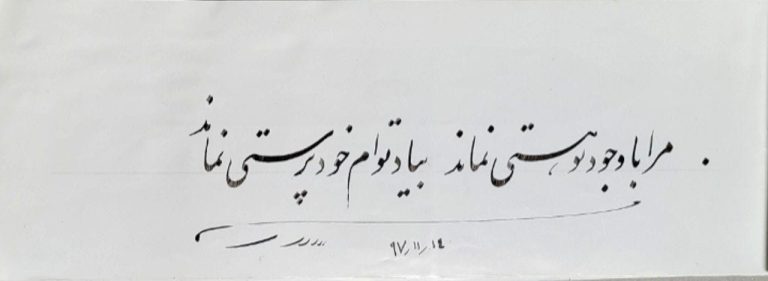 مرا با وجود تو هستی نماند بیاد توام خودپرستی نماند
۹۷٫۱۱٫۱٤